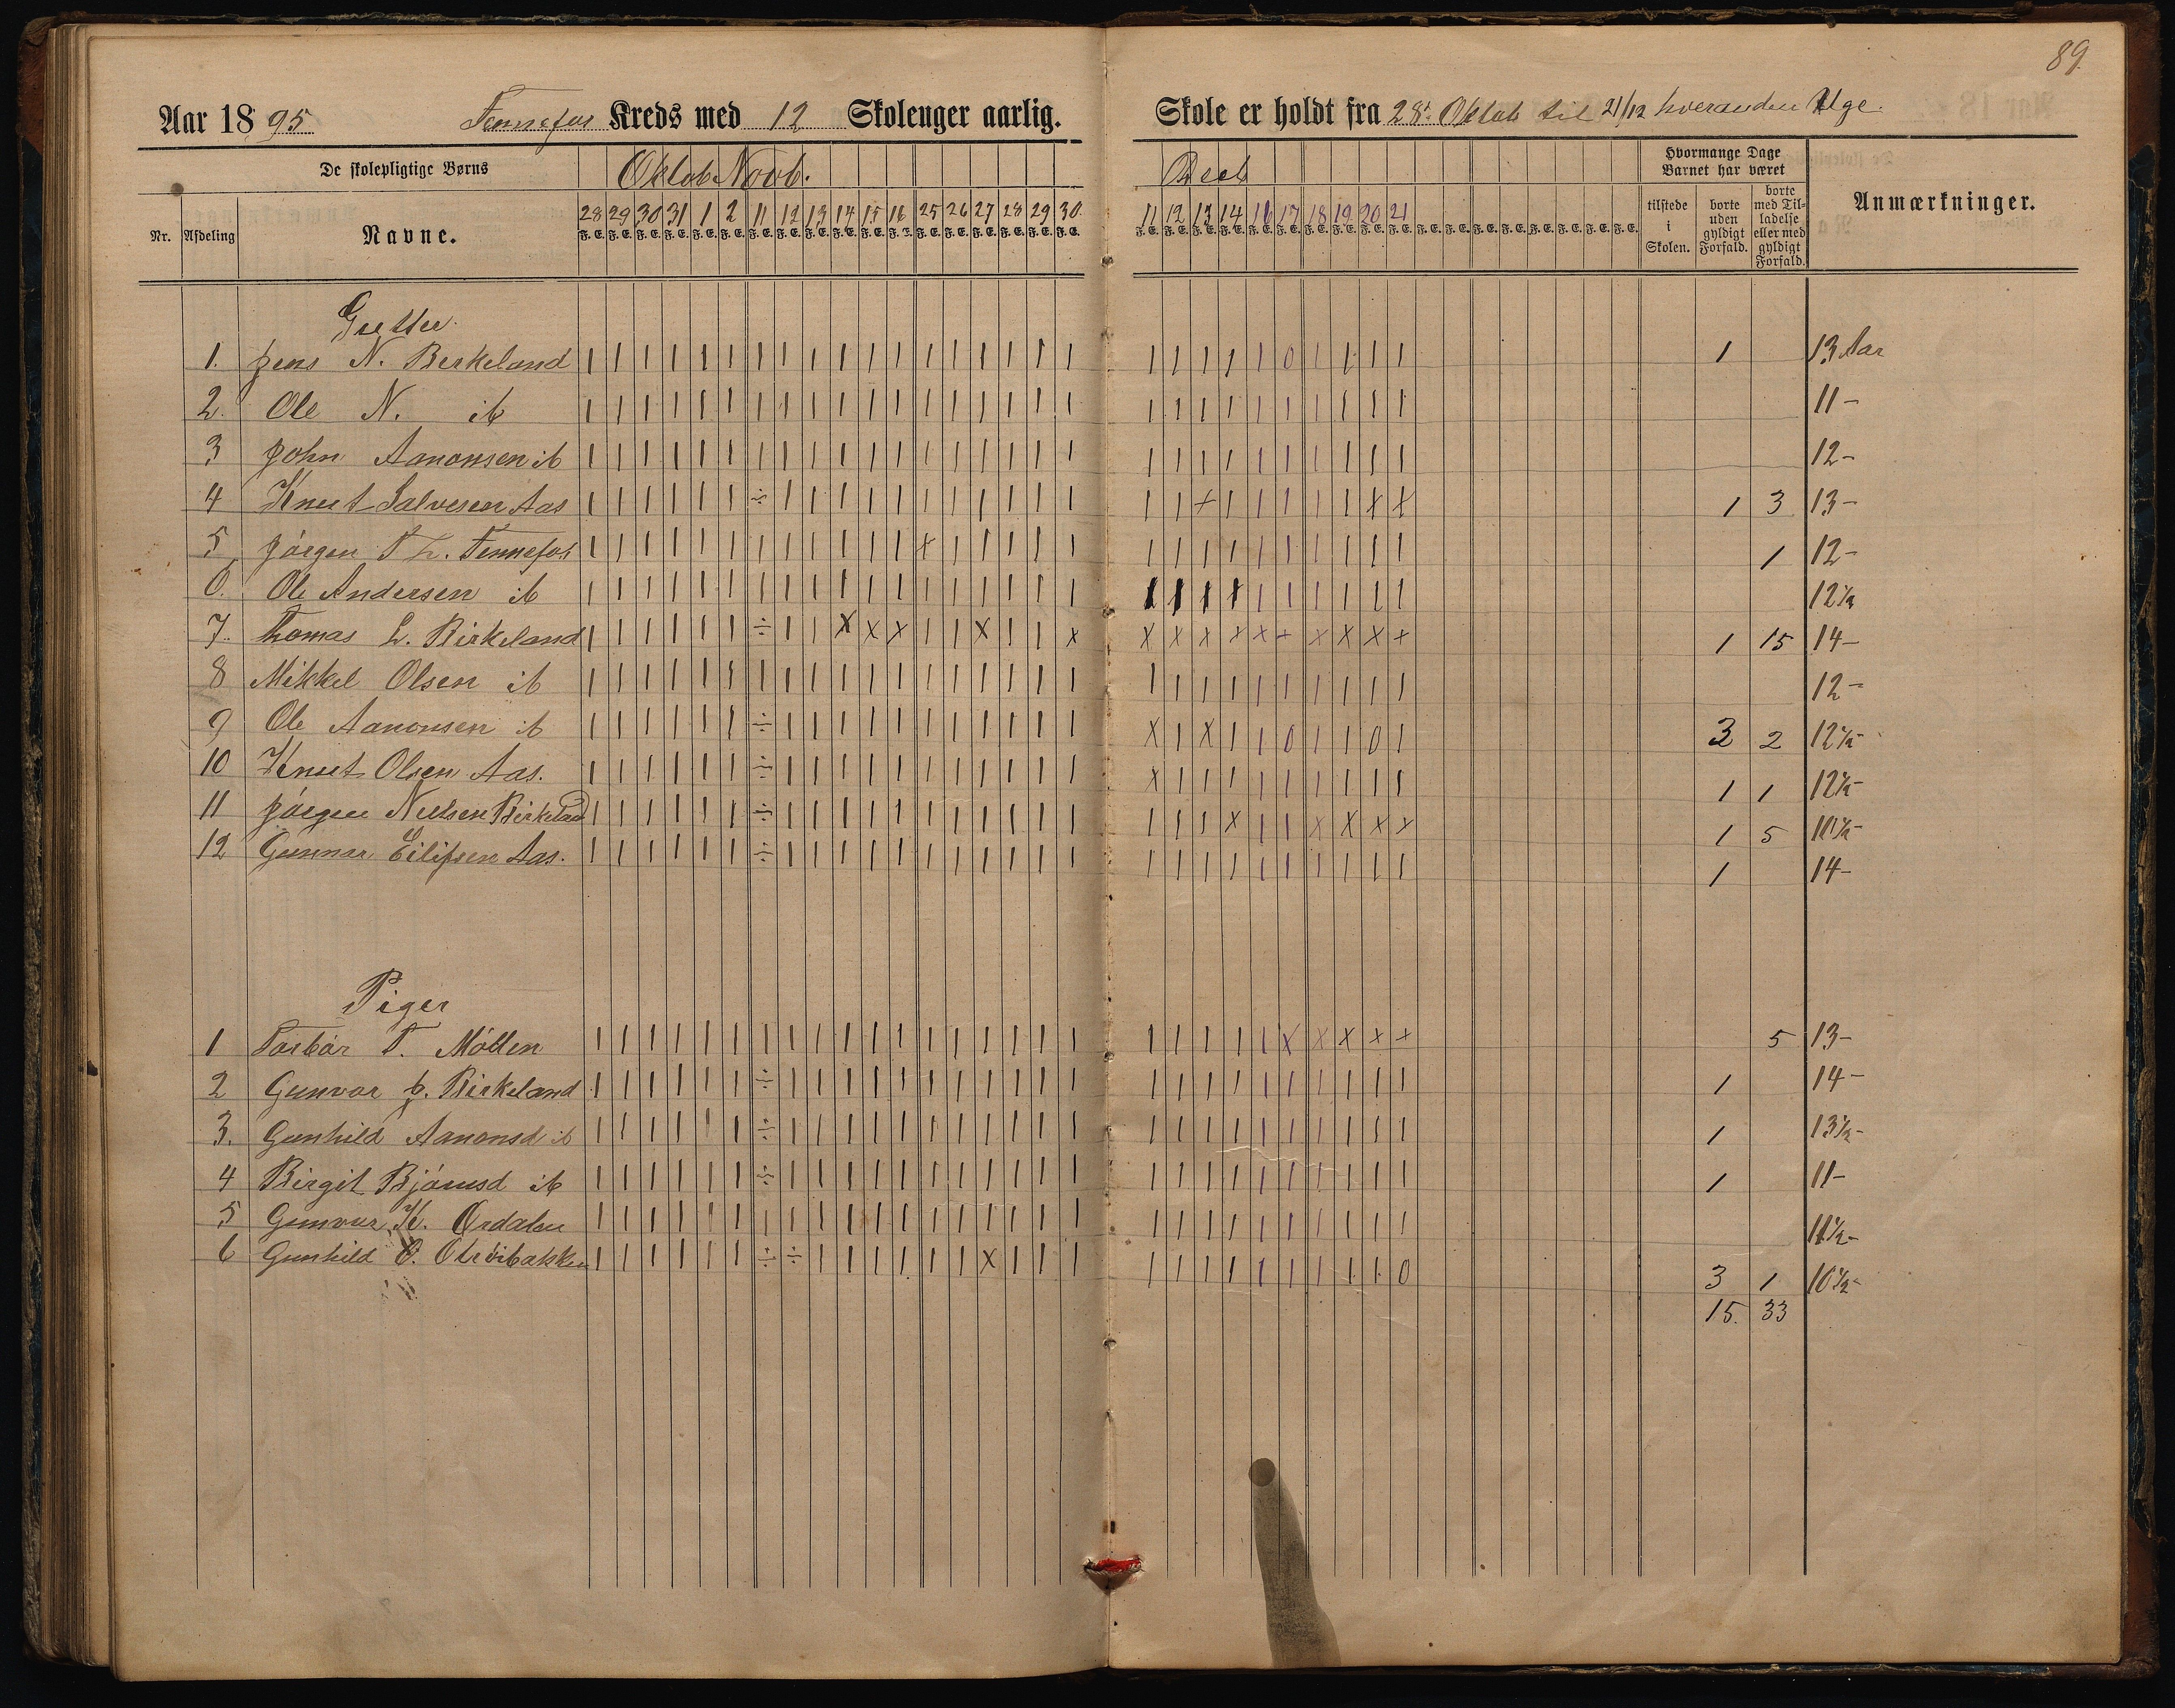 89.
Aar 1895 Fennefos Kreds med 12 Skoleuger aarlig. Skole er holdt fra 28de Oktob til 21/12 hveranden Uge.
De skolepligtige Børns Oktob. Novb. Decb Hvormange Dage Barnet har været
Nr. Afdeling Navne. 28 29 30 31 1 2 11 12 13 14 15 16 25 26 27 28 29 30 11 12 13 14 16 17 18 19 20 21 tilstede i Skolen. borte uden gyldigt Forfald. borte med Tilladelse eller med gyldigt Forfald. Anmærkninger.
F. E. F. E. F. E. F. E. F. E. F. E. F. E. F. E. F. E. F. E. F. E. F. E. F. E. F. E. F. E. F. E. F. E. F. E. F. E. F. E. F. E. F. E. F. E. F. E. F. E. F. E. F. E. F. E. F. E. F. E. F. E. F. E. F. E. F. E. F. E. F. E.
Gutter.
1. Jens N. Berkeland | | | | | | | | | | | | | | | | | | | | | | | 0 | | | | 1 13 Aar
2. Ole N. ib | | | | | | | | | | | | | | | | | | | | | | | | | | | | 11 -
3 John Aanonsen ib | | | | | | | | | | | | | | | | | | | | | | | | | | | | 12 -
4 Knut Salvesen Aas | | | | | | ÷ | | | | | | | | | | | | | x | | | | | x x 1 3 13 -
5 Jörgen T L. Fennefos | | | | | | | | | | | | x | | | | | | | | | | | | | | | 1 12 -
6. Ole Andersen ib | | | | | | | | | | | | | | | | | | | | | | | | | | | | 12½
7. Thomas L. Birkeland | | | | | | ÷ | | x x x | | x | | x x x x x x x x x x x 1 15 14 -
8 Mikkel Olsen ib | | | | | | | | | | | | | | | | | | | | | | | | | | | | 12 -
9 Ole Aanonsen ib | | | | | | ÷ | | | | | | | | | | | x | x | | 0 | | 0 | 3 2 12½ -
10 Knut Olsen Aas. | | | | | | ÷ | | | | | | | | | | | x | | | | | | | | | 1 1 12½ -
11 Jörgen Nielsen Birkeland | | | | | | ÷ | | | | | | | | | | | | | | x | | x x x x 1 5 10½ -
12 Gunnar Eilifsen Aas. | | | | | | ÷ | | | | | | | | | | | | | | | | | | | | | 1 14 -
Piger
1 Torbör T. Möllen | | | | | | | | | | | | | | | | | | | | | | | x x x x x 5 13 -
2 Gunvor J. Birkeland | | | | | | ÷ | | | | | | | | | | | | | | | | | | | | | 1 14 -
3. Gunhild Aanonsd ib | | | | | | ÷ | | | | | | | | | | | | | | | | | | | | | 1 13½ -
4 Birgit Björnsd ib | | | | | | ÷ | | | | | | | | | | | | | | | | | | | | | 1 11 -
5 Gunvor K. Ordalen | | | | | | | | | | | | | | | | | | | | | | | | | | | | 11½ -
6 Gunhild O. | | | | | | ÷ ÷ | | | | | | x | | | | | | | | | | | | 0 3 1 10½ -
15. 33